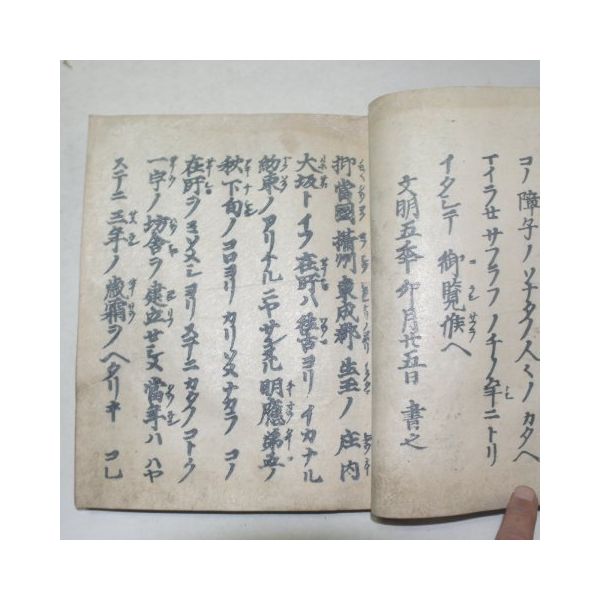 コノ障子ノソナタノ人々ノカタヘ
マイラセサフラフノチノ年ニトリ
イタシテ御覧候ヘ
文明五年卯月廿五日 書之
抑當國攝州東成郡生玉ノ庄内
大坂トイフ在所ハ往古ヨリイカナル
約束ノアリケルニヤサンヌル明應第五ノ
秋下旬ノコロヨリカリソメナカラコノ
在所ヲミソメシヨリステニカタノコトク
一宇ノ坊舎ヲ建立セシメ當年ハハヤ
ステニ三年ノ歳霜ヲヘタリキ コレ